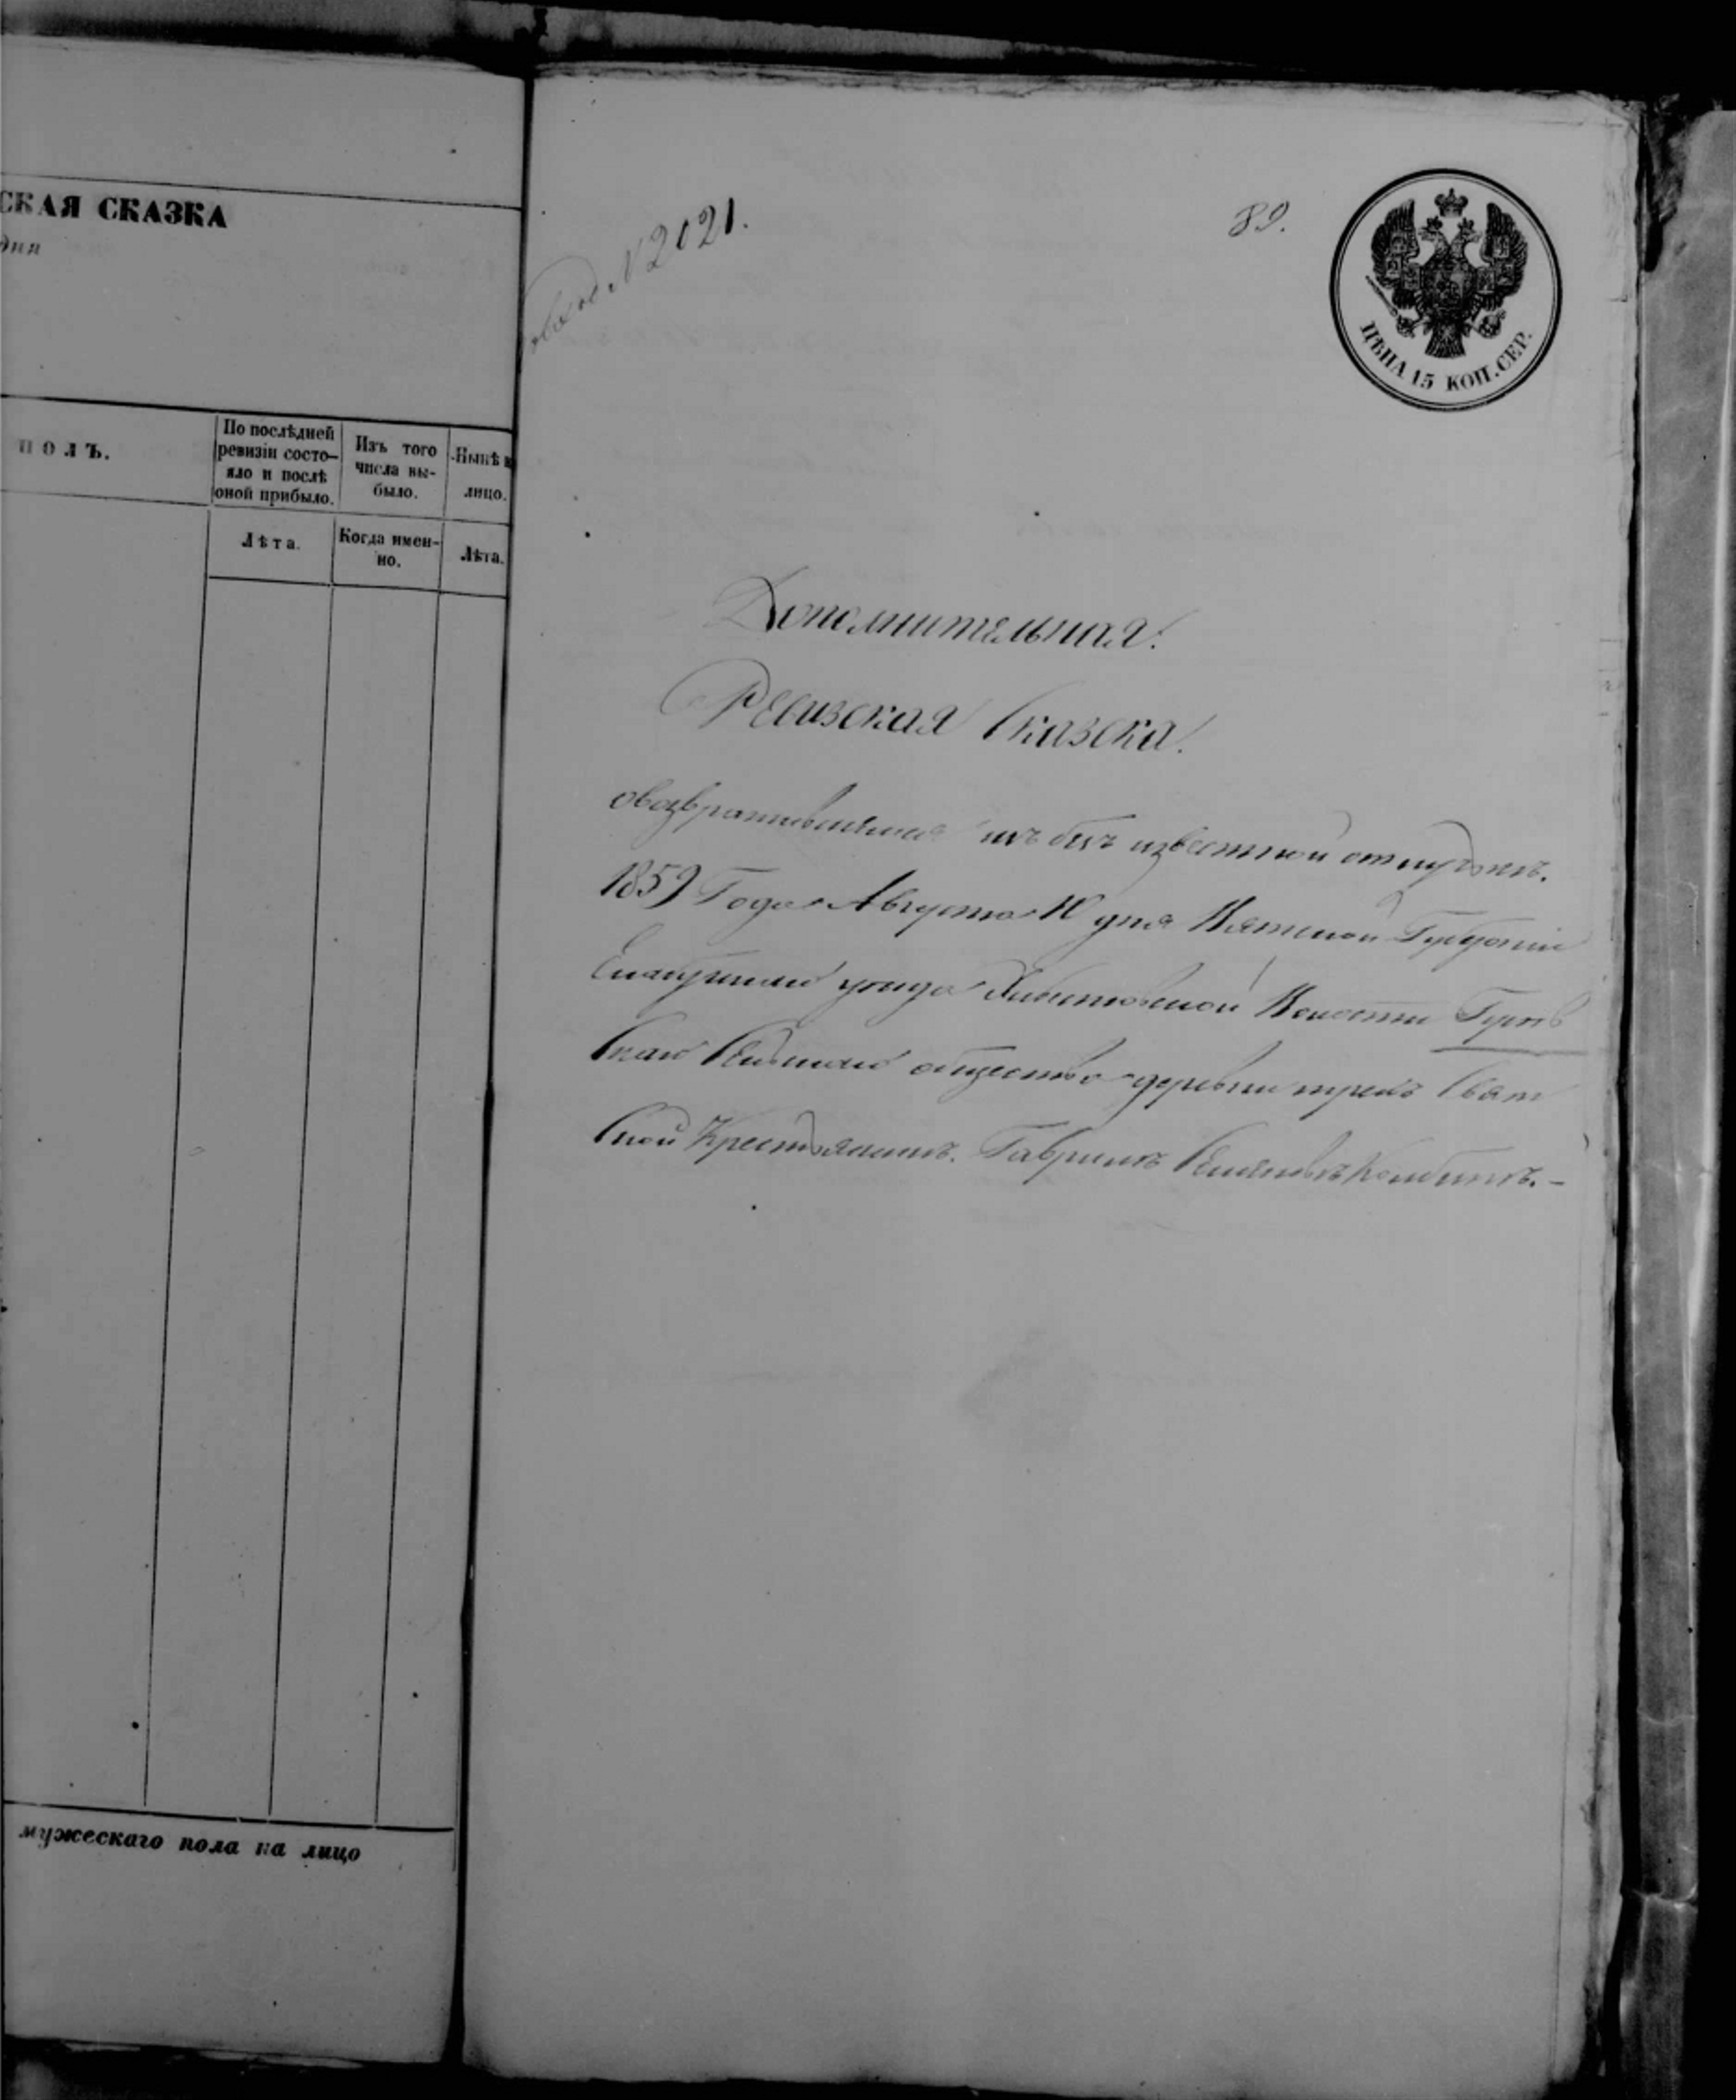 СКАЯ СКАЗКА
дня
ПОЛЪ.
По послѣдней
ревизіи состо-
яло и послѣ
оной прибыло.
Изъ того
числа вы-
было.
Нынѣ
лицо.
Лѣта.
Когда имен-
но.
Лѣта.
мужескаго пола на лицо
№ 2021.
89.
ЦѢНА 15 КОП. СЕР.
Дополнительная.
Ревизская Сказска.
овозвратившемся изъ безъ известной отлучки.
1859 Года Августа 10 дня Вятской Губернии
Елабужскаго уезда Волости
скаго Сельскаго общества деревни
Крестьянинъ. Гаврилъ